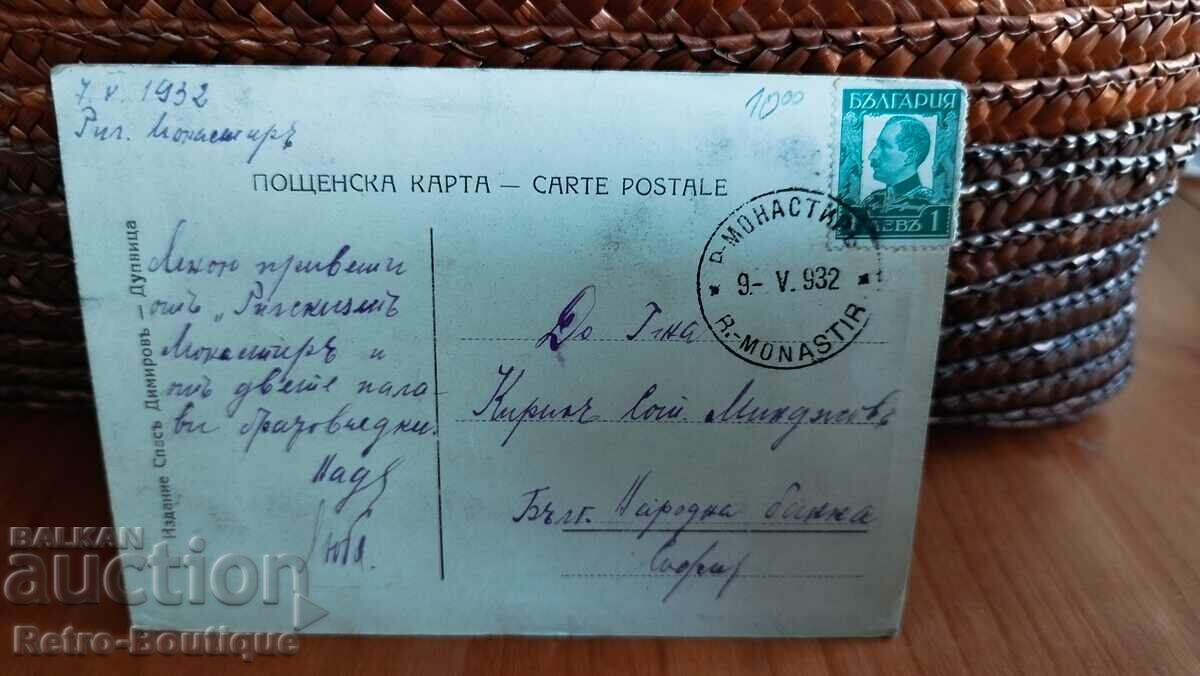 7 V. 1932
Рил. Монастиръ
10⁰⁰
БЪЛГАРИЯ
1 ЛЕВЪ
ПОЩЕНСКА КАРТА — CARTE POSTALE
Р-МОНАСТИР
9- V. 932
R.-MONASTIR
Издание Спасъ Димировъ — Дупница
привети
отъ
Монастиръ и
отъ двете пала-
ви
Надя
Люба.
До Г-на
Кирилъ Минджовъ
Бълг. Народна банка
София
BALKAN
auction
Retro-Boutique